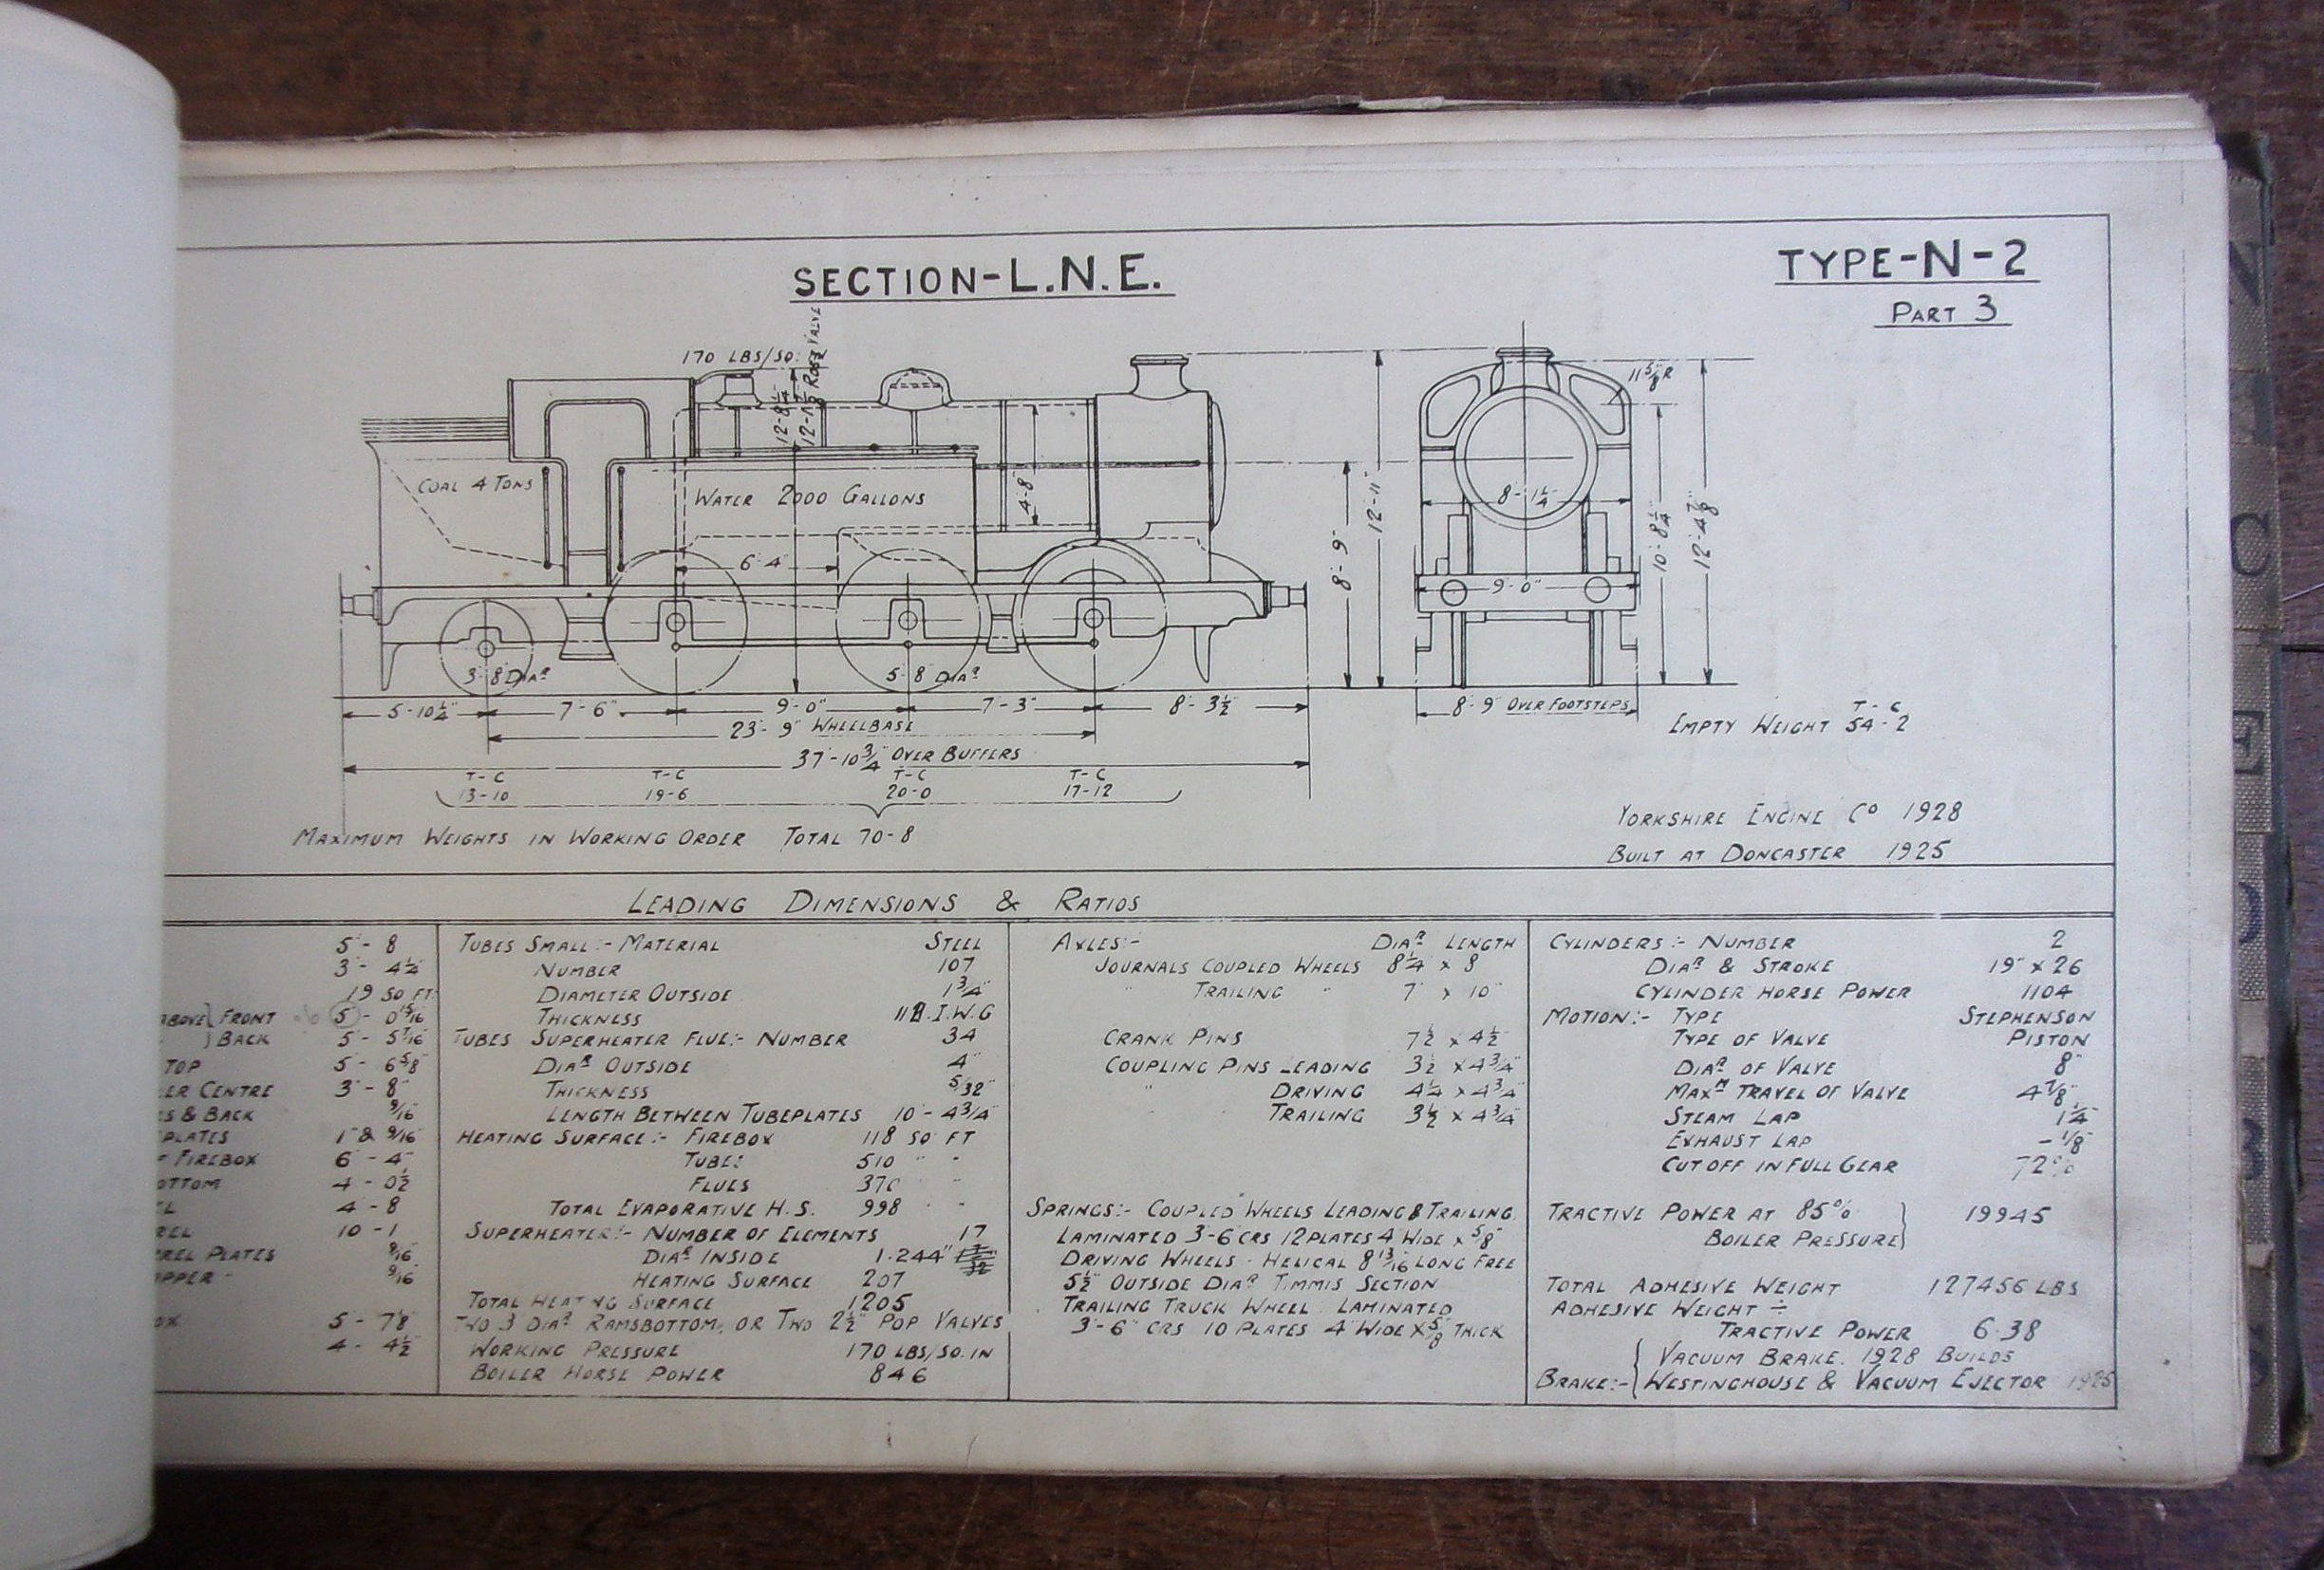 SECTION-L.N.E.
TYPE-N-2
PART 3
170 LBS/SQ.
12-8¼
11⅝"R
COAL 4 TONS
WATER 2000 GALLONS
4-8"
6-4"
8'-9"
12'-11"
8'-1¼"
9'-0"
10'-8¼"
12'-4⅞"
3'-8"DIAR
5'-8"DIAR
5'-10¼" 7'-6" 9'-0" 7'-3" 8'-3½"
8'-9" OVER FOOTSTEPS
23'-9" WHEELBASE
37'-10¾" OVER BUFFERS
T-C T-C T-C T-C
13-10 19-6 20-0 17-12
MAXIMUM WEIGHTS IN WORKING ORDER TOTAL 70-8
T-C
EMPTY WEIGHT 54-2
YORKSHIRE ENGINE Co 1928
BUILT AT DONCASTER 1925
LEADING DIMENSIONS & RATIOS
5'-8
3'-4¼"
19 SQ FT.
FRONT 5'-0 15/16
BACK 5'-5 7/16
TOP 5'-6⅝"
CENTRE 3'-8"
& BACK 9/16"
PLATES 1"& 9/16"
FIREBOX 6'-4"
4-0½
4-8
10-1
PLATES 9/16
9/16"
5-7⅞"
4-4½"
TUBES SMALL:- MATERIAL STEEL
NUMBER 107
DIAMETER OUTSIDE 1¾"
THICKNESS 11 B.I.W.G
TUBES SUPERHEATER FLUE:- NUMBER 34
DIAR OUTSIDE 4"
THICKNESS 5/32"
LENGTH BETWEEN TUBEPLATES 10'-4¾"
HEATING SURFACE:- FIREBOX 118 SQ FT
TUBES 510 " "
FLUES 370 " "
TOTAL EVAPORATIVE H.S. 998 " "
SUPERHEATER:- NUMBER OF ELEMENTS 17
DIAR INSIDE 1.244"
HEATING SURFACE 207
TOTAL HEATING SURFACE 1205
TWO 3" DIAR RAMSBOTTOM, OR TWO 2½" POP VALVES
WORKING PRESSURE 170 LBS/SQ.IN
BOILER HORSE POWER 846
AXLES:- DIAR LENGTH
JOURNALS COUPLED WHEELS 8¼ x 8
" TRAILING " 7" x 10"
CRANK PINS 7½ x 4½
COUPLING PINS LEADING 3½ x 4¾"
" DRIVING 4¼ x 4¾"
" TRAILING 3½ x 4¾"
SPRINGS:- COUPLED WHEELS LEADING & TRAILING.
LAMINATED 3'-6"CRS 12 PLATES 4"WIDE x ⅝"
DRIVING WHEELS - HELICAL 8 13/16" LONG FREE
5½" OUTSIDE DIAR TIMMIS SECTION
TRAILING TRUCK WHEEL. LAMINATED
3'-6" CRS 10 PLATES 4"WIDE x ⅝" THICK
CYLINDERS:- NUMBER 2
DIAR & STROKE 19" x 26
CYLINDER HORSE POWER 1104
MOTION:- TYPE STEPHENSON
TYPE OF VALVE PISTON
DIAR OF VALVE 8"
MAXM TRAVEL OF VALVE 4⅞"
STEAM LAP 1¼"
EXHAUST LAP -⅛"
CUT OFF IN FULL GEAR 72%
TRACTIVE POWER AT 85% 19945
BOILER PRESSURE
TOTAL ADHESIVE WEIGHT 127456 LBS
ADHESIVE WEIGHT ÷
TRACTIVE POWER 6.38
VACUUM BRAKE. 1928 BUILDS
BRAKE:- WESTINGHOUSE & VACUUM EJECTOR 1925